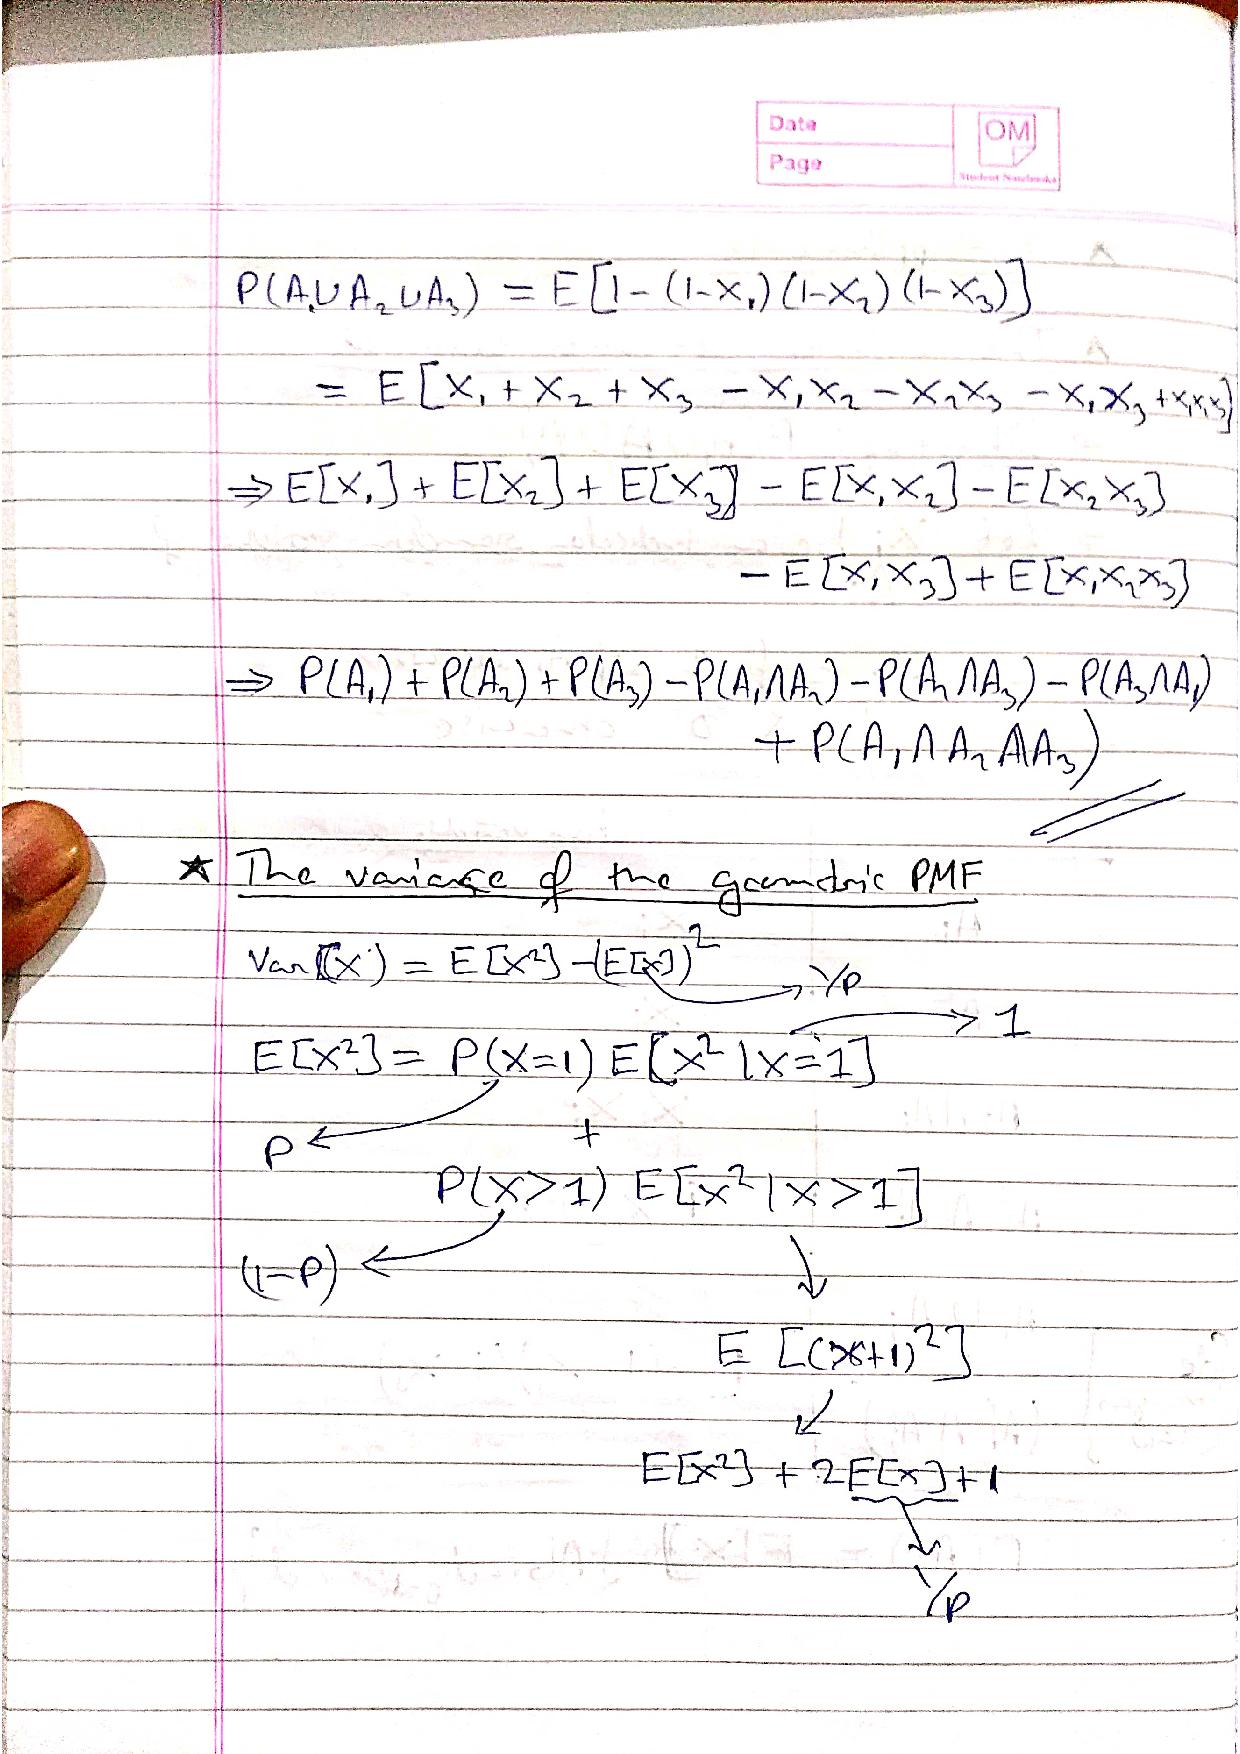 Date
Page
OM
Student Notebooks
P(A₁∪A₂∪A₃) = E[1-(1-X₁)(1-X₂)(1-X₃)]
= E[X₁+X₂+X₃-X₁X₂-X₂X₃-X₁X₃+X₁X₂X₃]
⇒ E[X₁]+E[X₂]+E[X₃]-E[X₁X₂]-E[X₂X₃]
-E[X₁X₃]+E[X₁X₂X₃]
⇒ P(A₁)+P(A₂)+P(A₃)-P(A₁∩A₂)-P(A₂∩A₃)-P(A₃∩A₁)
+ P(A₁∩A₂∩A₃)
★ The variance of the geometric PMF
Var(X) = E[X²]-(E[X])²
→ 1/P
→ 1
E[X²] = P(X=1) E[X²|X=1]
P ←
+
P(X>1) E[X²|X>1]
(1-P) ←
↓
E [(X+1)²]
↙
E[X²] + 2E[X]+1
↘
1/P